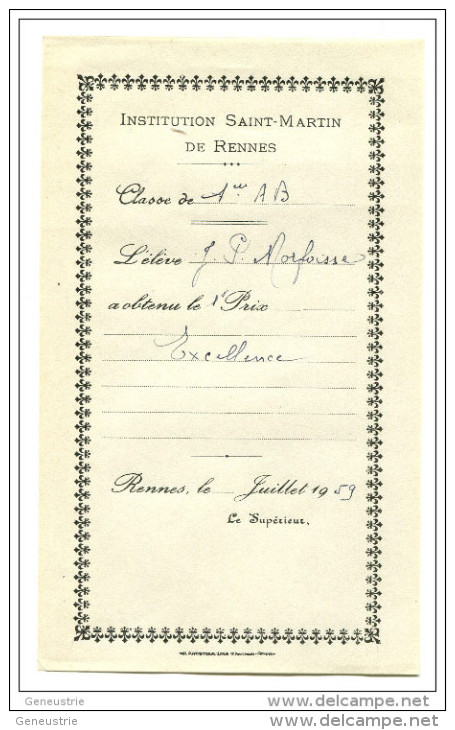 INSTITUTION SAINT-MARTIN
DE RENNES
Classe de 1ère AB
L'élève J. P. Morfoisse
a obtenu le 1er Prix
Excellence
Rennes, le Juillet 1959
Le Supérieur,
Geneustrie
delcampe.net
Geneustrie
delcampe.net